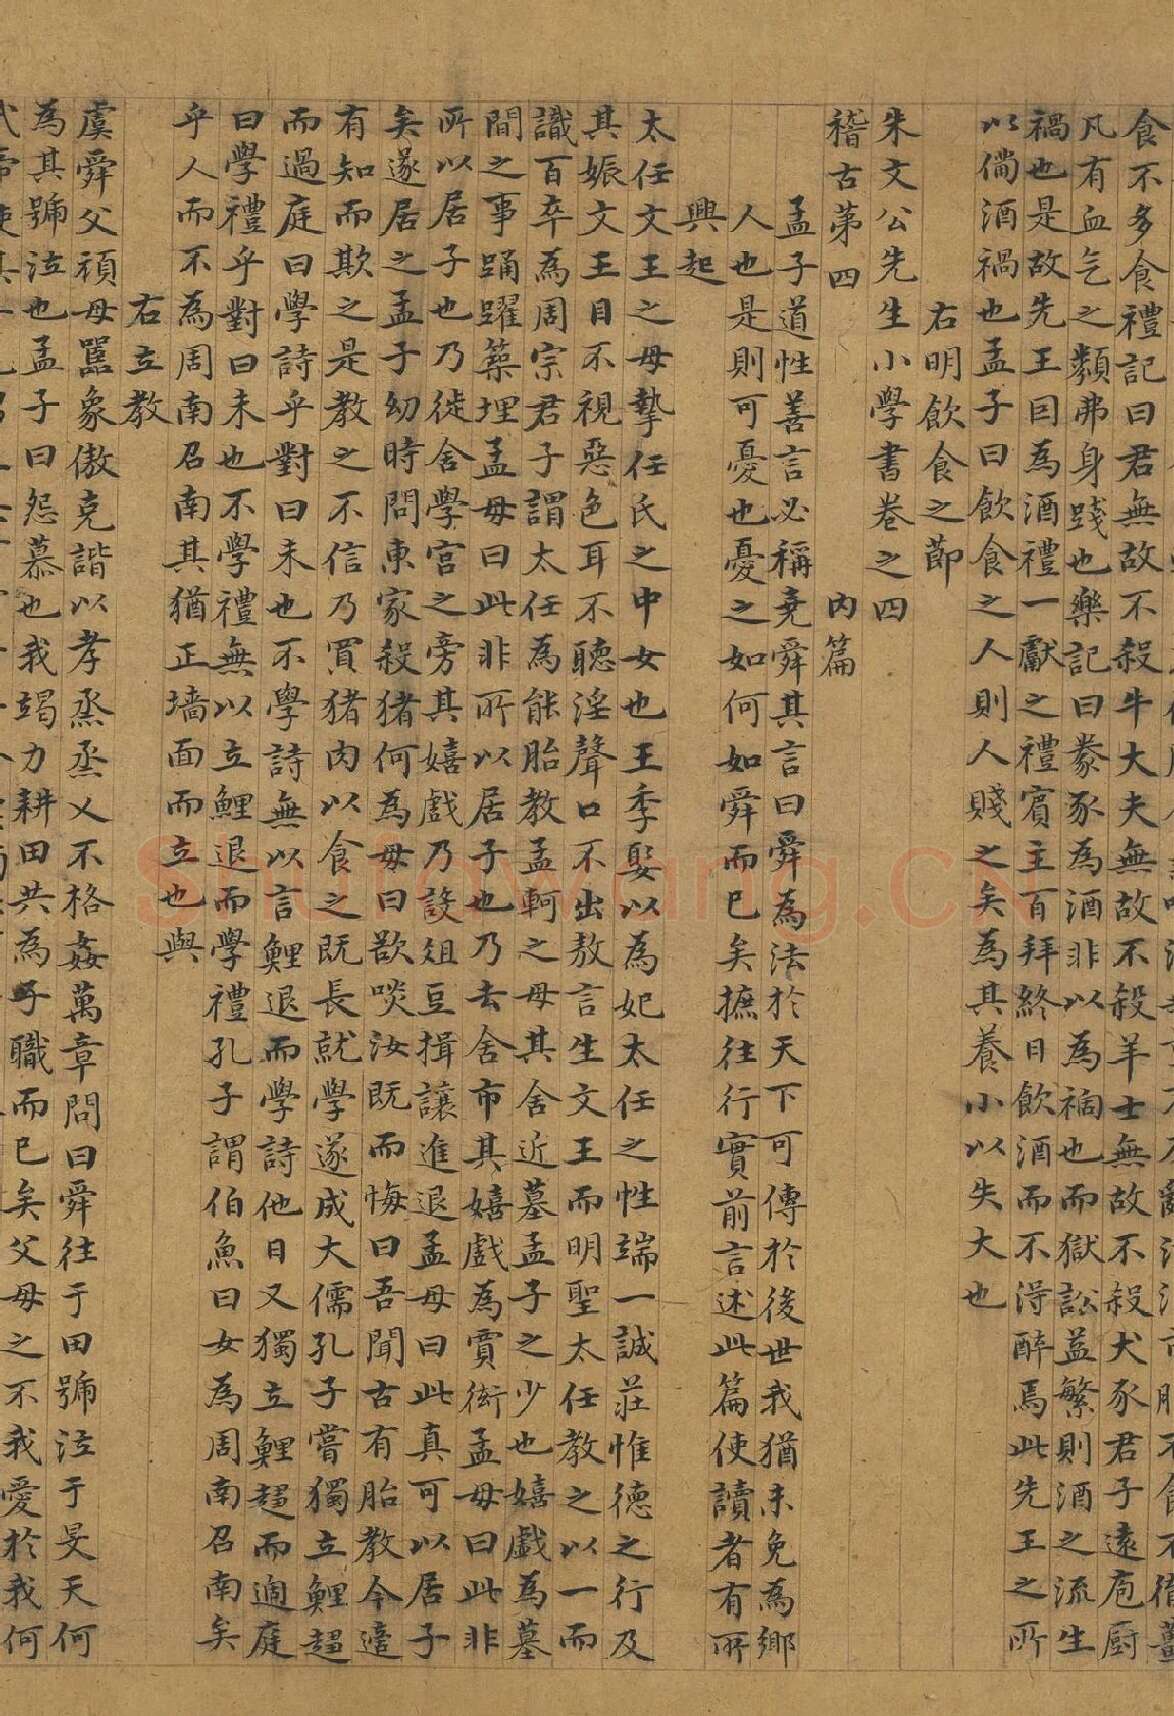 食不多食禮記曰君無故不殺牛大夫無故不殺羊士無故不殺犬豕君子遠庖廚
凡有血气之類弗身踐也樂記曰豢豕為酒非以為禍也而獄訟益繁則酒之流生
禍也是故先王因為酒禮一獻之禮賓主百拜終日飲酒而不得醉焉此先王之所
以備酒禍也孟子曰飲食之人則人賤之矣為其養小以失大也
右明飲食之節
朱文公先生小學書卷之四
稽古第四 內篇
孟子道性善言必稱堯舜其言曰舜為法於天下可傳於後世我猶未免為鄉
人也是則可憂也憂之如何如舜而已矣摭往行實前言述此篇使讀者有所
興起
太任文王之母摯任氏之中女也王季娶以為妃太任之性端一誠莊惟德之行及
其娠文王目不視惡色耳不聽淫聲口不出敖言生文王而明聖太任教之以一而
識百卒為周宗君子謂太任為能胎教孟軻之母其舍近墓孟子之少也嬉戲為墓
間之事踊躍築埋孟母曰此非所以居子也乃去舍市其嬉戲為賈衒孟母曰此非
所以居子也乃徙舍學宮之旁其嬉戲乃設俎豆揖讓進退孟母曰此真可以居子
矣遂居之孟子幼時問東家殺猪何為母曰欲啖汝既而悔曰吾聞古有胎教今適
有知而欺之是教之不信乃買猪肉以食之既長就學遂成大儒孔子嘗獨立鯉趨
而過庭曰學詩乎對曰未也不學詩無以言鯉退而學詩他日又獨立鯉趨而過庭
曰學禮乎對曰未也不學禮無以立鯉退而學禮孔子謂伯魚曰女為周南召南矣
乎人而不為周南召南其猶正墻面而立也與
右立教
虞舜父頑母嚚象傲克諧以孝烝烝乂不格姦萬章問曰舜往于田號泣于旻天何
為其號泣也孟子曰怨慕也我竭力耕田共為子職而已矣父母之不我愛於我何